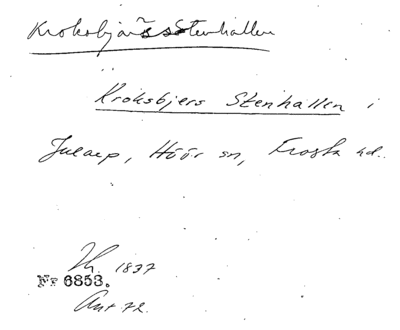 Kroksbjärs Stenhallen
Kroksbjers Stenhallen i
Jularp, Höör sn, Frosta hd.
1837
Nr 6853.
Ant. 72.